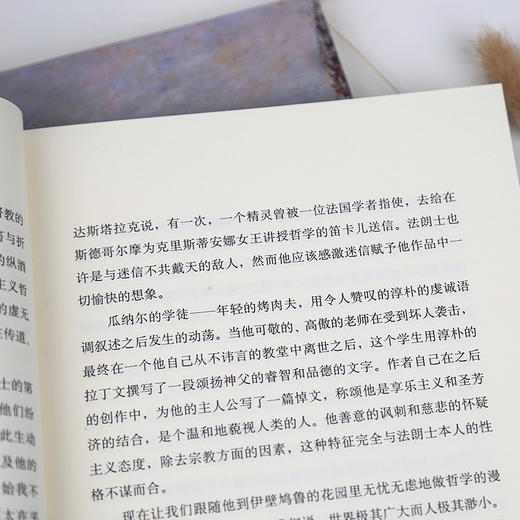 督教的
答与折
的纵酒
主义哲
的虚无
在传道、
士的第
他们纷
此生动
及他的
始我不
太在乎
达斯塔拉克说，有一次，一个精灵曾被一位法国学者指使，去给在
斯德哥尔摩为克里斯蒂安娜女王讲授哲学的笛卡儿送信。法朗士也
许是与迷信不共戴天的敌人，然而他应该感激迷信赋予他作品中一
切愉快的想象。
瓜纳尔的学徒——年轻的烤肉夫，用令人赞叹的淳朴的虔诚语
调叙述之后发生的动荡。当他可敬的、高傲的老师在受到坏人袭击，
最终在一个他自己从不讳言的教堂中离世之后，这个学生用淳朴的
拉丁文撰写了一段颂扬神父的睿智和品德的文字。作者自己在之后
的创作中，为他的主人公写了一篇悼文，称颂他是享乐主义和圣芳
济的结合，是个温和地藐视人类的人。他善意的讽刺和慈悲的怀疑
主义态度，除去宗教方面的因素，这种特征完全与法朗士本人的性
格不谋而合。
现在让我们跟随他到伊壁鸠鲁的花园里无忧无虑地做哲学的漫
世界极其广大而人极其渺小。